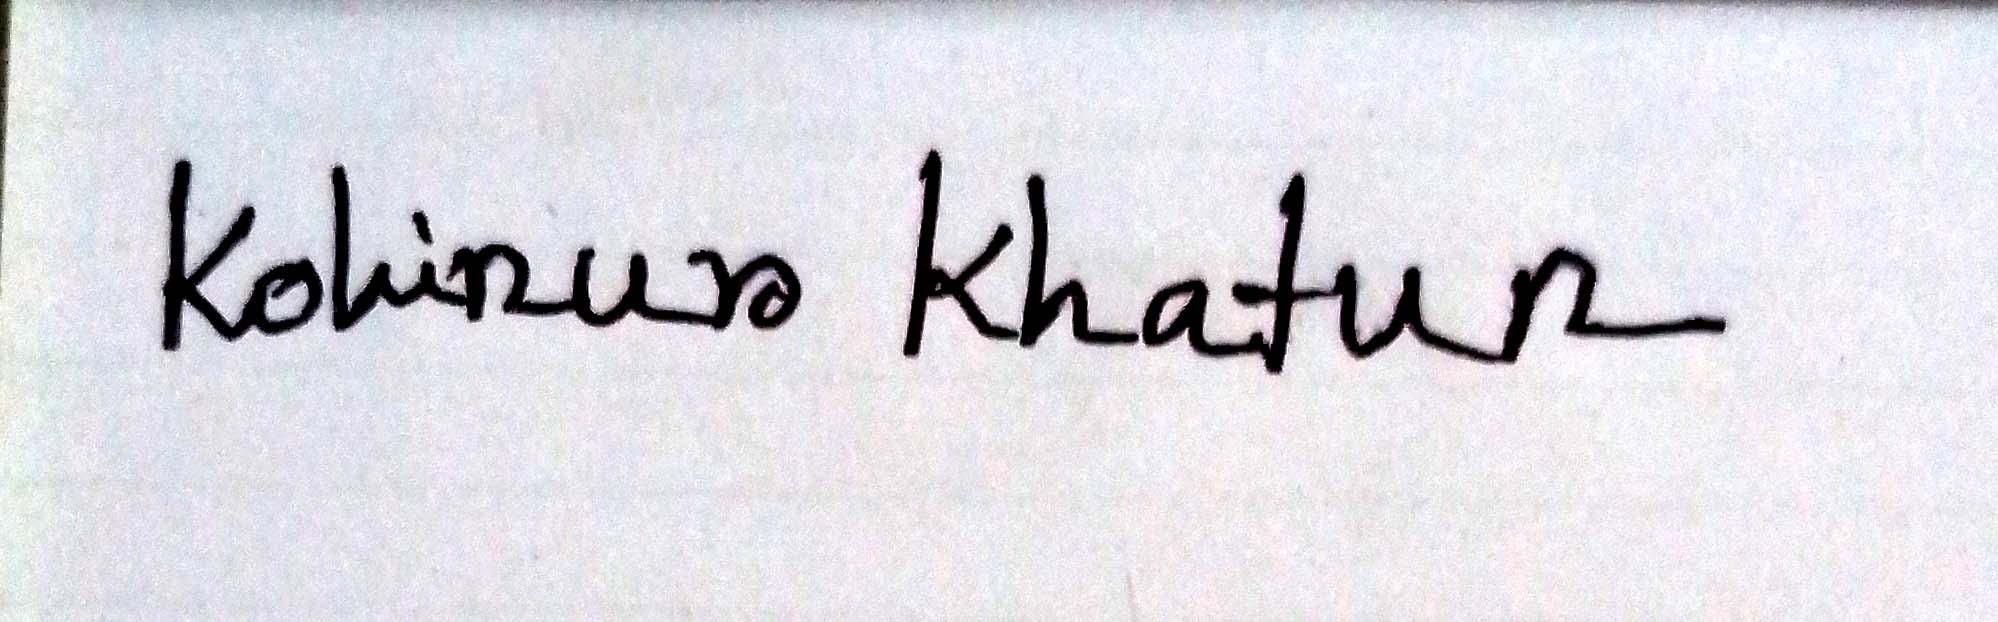 Kohinur Khatun